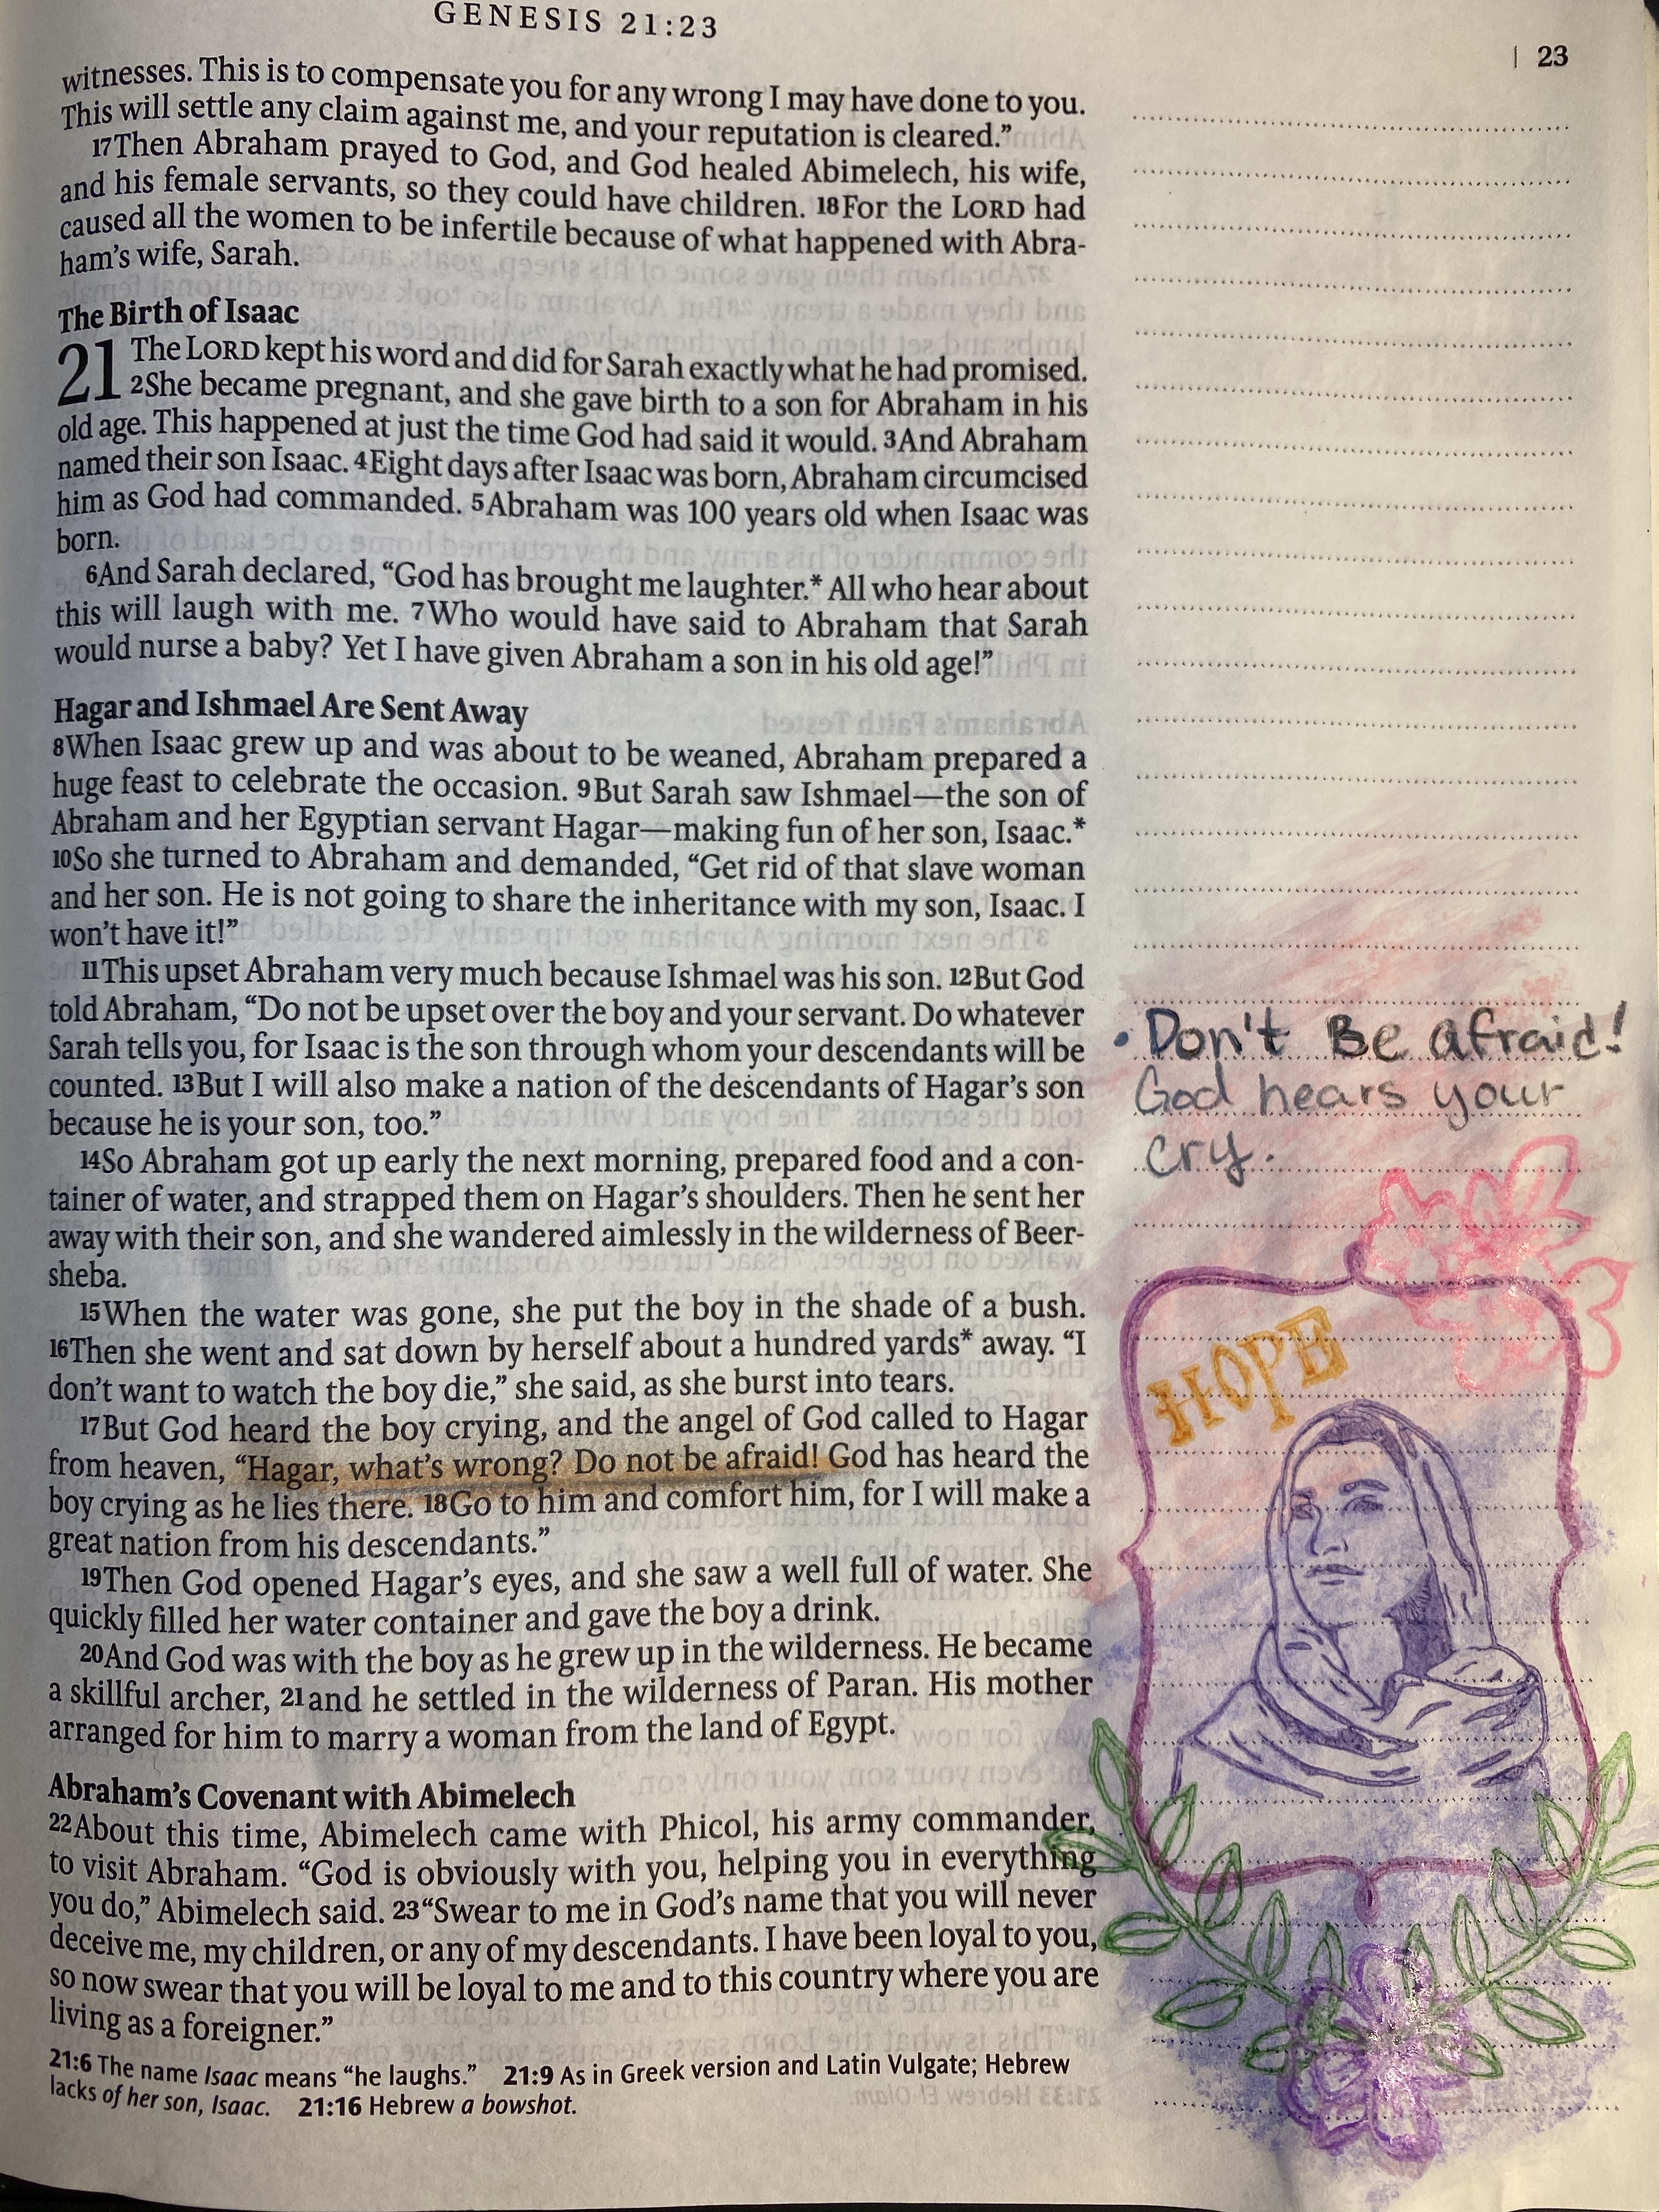 GENESIS 21:23
| 23
witnesses. This is to compensate you for any wrong I may have done to you.
This will settle any claim against me, and your reputation is cleared.”
17Then Abraham prayed to God, and God healed Abimelech, his wife,
and his female servants, so they could have children. 18For the LORD had
caused all the women to be infertile because of what happened with Abra-
ham’s wife, Sarah.
The Birth of Isaac
21 The LORD kept his word and did for Sarah exactly what he had promised.
2She became pregnant, and she gave birth to a son for Abraham in his
old age. This happened at just the time God had said it would. 3And Abraham
named their son Isaac. 4Eight days after Isaac was born, Abraham circumcised
him as God had commanded. 5Abraham was 100 years old when Isaac was
born.
6And Sarah declared, “God has brought me laughter.* All who hear about
this will laugh with me. 7Who would have said to Abraham that Sarah
would nurse a baby? Yet I have given Abraham a son in his old age!”
Hagar and Ishmael Are Sent Away
8When Isaac grew up and was about to be weaned, Abraham prepared a
huge feast to celebrate the occasion. 9But Sarah saw Ishmael—the son of
Abraham and her Egyptian servant Hagar—making fun of her son, Isaac.*
10So she turned to Abraham and demanded, “Get rid of that slave woman
and her son. He is not going to share the inheritance with my son, Isaac. I
won’t have it!”
11This upset Abraham very much because Ishmael was his son. 12But God
told Abraham, “Do not be upset over the boy and your servant. Do whatever
Sarah tells you, for Isaac is the son through whom your descendants will be
counted. 13But I will also make a nation of the descendants of Hagar’s son
because he is your son, too.”
14So Abraham got up early the next morning, prepared food and a con-
tainer of water, and strapped them on Hagar’s shoulders. Then he sent her
away with their son, and she wandered aimlessly in the wilderness of Beer-
sheba.
15When the water was gone, she put the boy in the shade of a bush.
16Then she went and sat down by herself about a hundred yards* away. “I
don’t want to watch the boy die,” she said, as she burst into tears.
17But God heard the boy crying, and the angel of God called to Hagar
from heaven, “Hagar, what’s wrong? Do not be afraid! God has heard the
boy crying as he lies there. 18Go to him and comfort him, for I will make a
great nation from his descendants.”
19Then God opened Hagar’s eyes, and she saw a well full of water. She
quickly filled her water container and gave the boy a drink.
20And God was with the boy as he grew up in the wilderness. He became
a skillful archer, 21and he settled in the wilderness of Paran. His mother
arranged for him to marry a woman from the land of Egypt.
Abraham’s Covenant with Abimelech
22About this time, Abimelech came with Phicol, his army commander,
to visit Abraham. “God is obviously with you, helping you in everything
you do,” Abimelech said. 23“Swear to me in God’s name that you will never
deceive me, my children, or any of my descendants. I have been loyal to you,
so now swear that you will be loyal to me and to this country where you are
living as a foreigner.”
21:6 The name Isaac means “he laughs.” 21:9 As in Greek version and Latin Vulgate; Hebrew
lacks of her son, Isaac. 21:16 Hebrew a bowshot.
• Don't Be afraid!
God hears your
cry.
HOPE